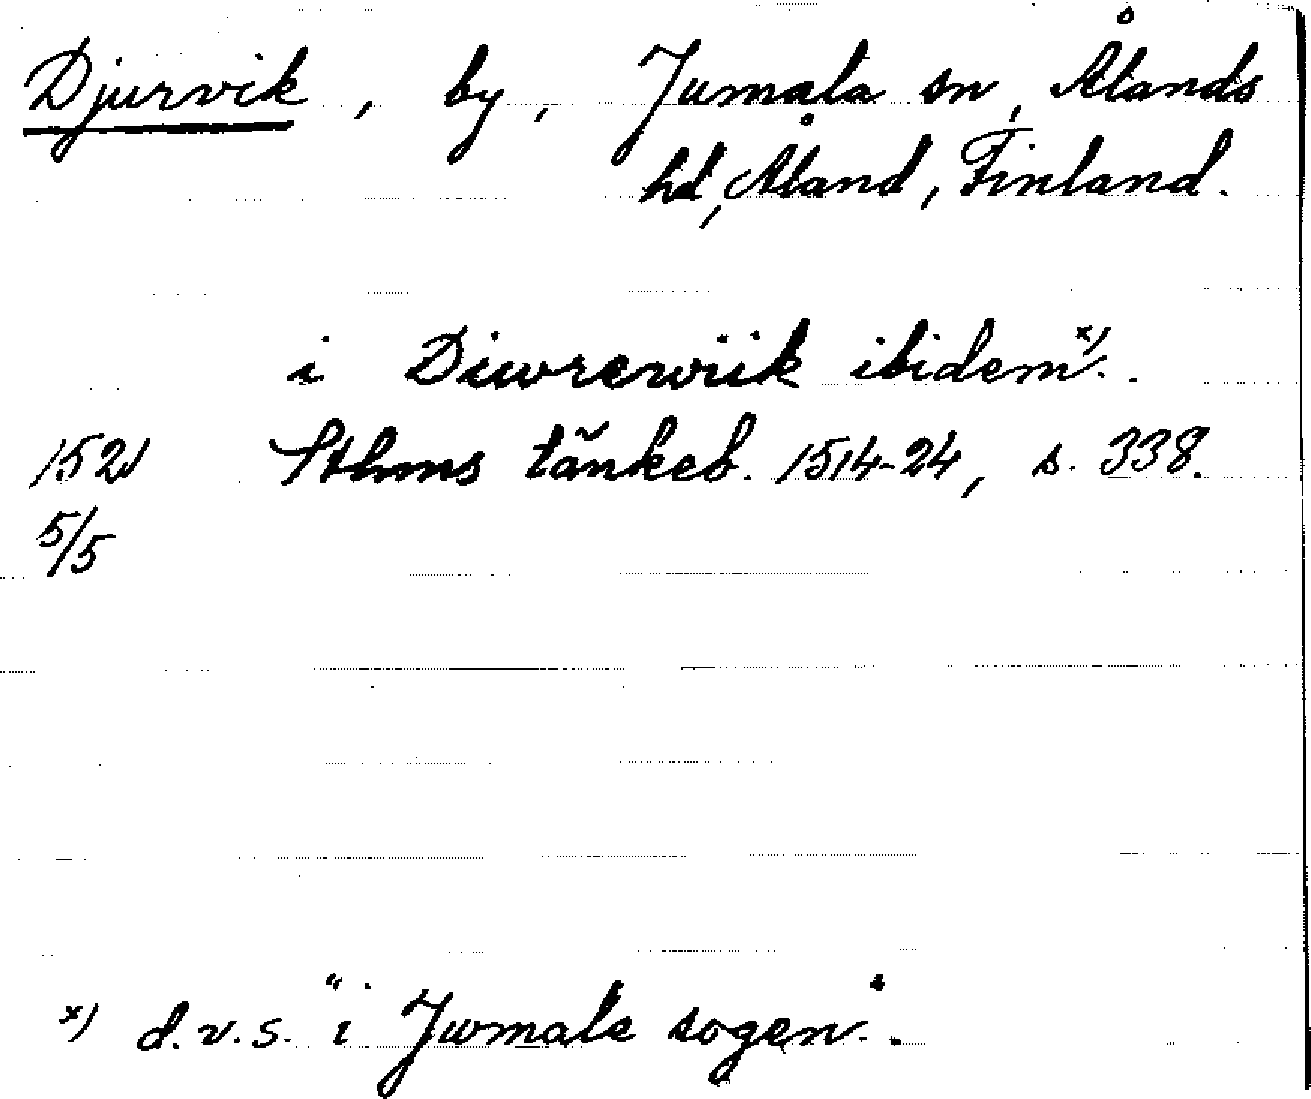 Djurvik, by, Jumala sn, Ålands
hd, Åland, Finland.
i Diwrewiik ibidem x).
1521 Sthms tänkeb. 1514-24, s. 338.
5/5
x) d.v.s. "i Jwmale sogen".